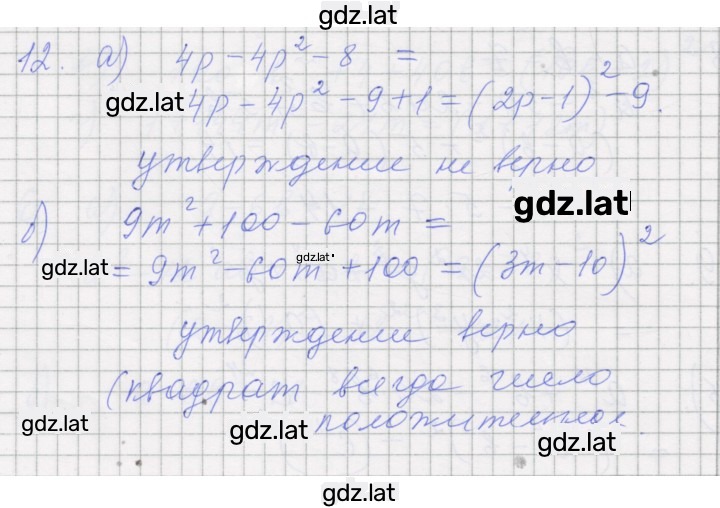 gdz.lat
12. а) 4p - 4p² - 8 =
gdz.lat 4p - 4p² - 9 + 1 = (2p - 1)² - 9.
утверждение не верно
gdz.lat
б) 9m² + 100 - 60m =
gdz.lat = 9m² - 60m + 100 = (3m - 10)²
gdz.lat
утверждение верно
(квадрат всегда число
gdz.lat gdz.lat положительное
gdz.lat
gdz.lat